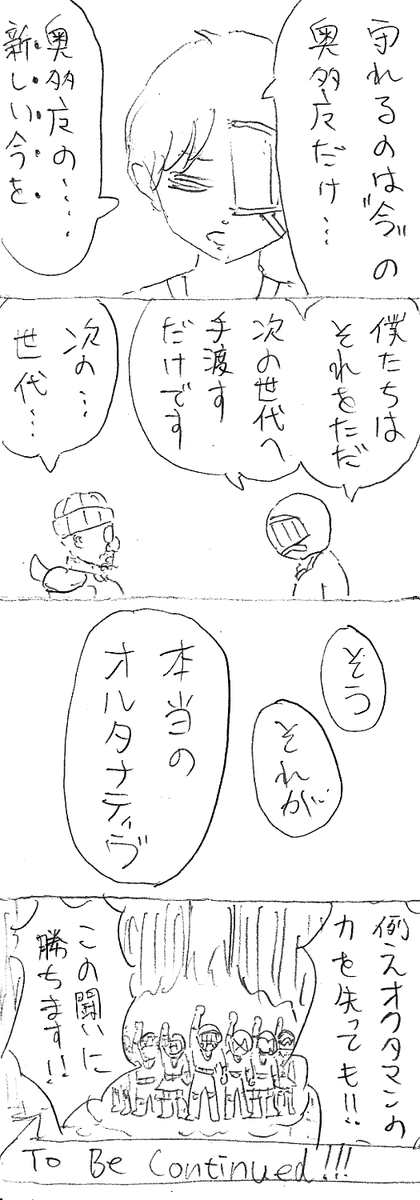 守れるのは“今”の
奥多広だけ…
奥多広の……
新しい今を
僕たちは
それをただ
次の世代へ
手渡す
だけです
次の…
世代…
そう
それが
本当の
オルタナティヴ
例えオクタマンの
力を失っても!!
この闘いに
勝ちます!!
To Be Continued!!!